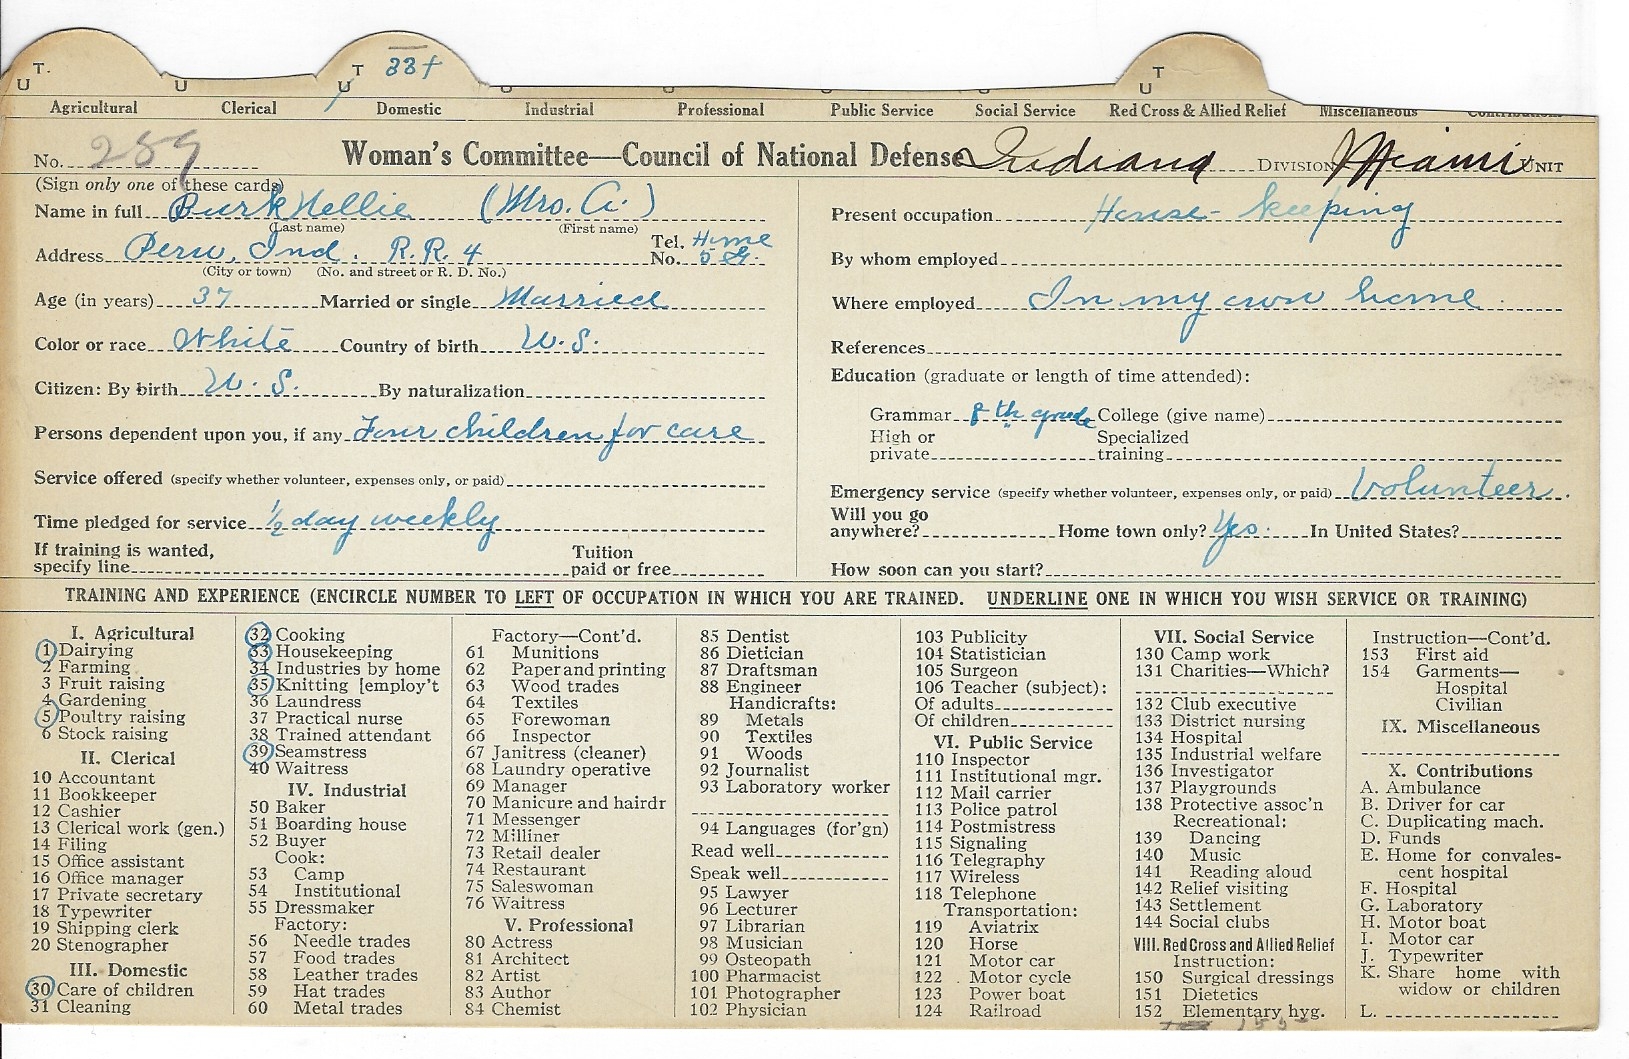 T. T 33f T
U U U U
Agricultural Clerical Domestic Industrial Professional Public Service Social Service Red Cross & Allied Relief Miscellaneous Contributions
No. 259 Woman's Committee—Council of National Defense Indiana DIVISION Miami UNIT
(Sign only one of these cards)
Name in full Burk Nellie (Mrs. A.)
(Last name) (First name)
Address Peru, Ind. R.R. 4 Tel. No. Home
(City or town) (No. and street or R. D. No.)
Age (in years) 37 Married or single Married
Color or race White Country of birth U.S.
Citizen: By birth U.S. By naturalization
Persons dependent upon you, if any Four children for care
Service offered (specify whether volunteer, expenses only, or paid)
Time pledged for service ½ day weekly
If training is wanted, specify line Tuition paid or free
Present occupation House-keeping
By whom employed
Where employed In my own home.
References
Education (graduate or length of time attended):
Grammar 8th grade College (give name)
High or private Specialized training
Emergency service (specify whether volunteer, expenses only, or paid) Volunteer.
Will you go anywhere? Home town only? Yes. In United States?
How soon can you start?
TRAINING AND EXPERIENCE (ENCIRCLE NUMBER TO LEFT OF OCCUPATION IN WHICH YOU ARE TRAINED. UNDERLINE ONE IN WHICH YOU WISH SERVICE OR TRAINING)
I. Agricultural
1 Dairying
2 Farming
3 Fruit raising
4 Gardening
5 Poultry raising
6 Stock raising
II. Clerical
10 Accountant
11 Bookkeeper
12 Cashier
13 Clerical work (gen.)
14 Filing
15 Office assistant
16 Office manager
17 Private secretary
18 Typewriter
19 Shipping clerk
20 Stenographer
III. Domestic
30 Care of children
31 Cleaning
32 Cooking
33 Housekeeping
34 Industries by home
35 Knitting [employ't
36 Laundress
37 Practical nurse
38 Trained attendant
39 Seamstress
40 Waitress
IV. Industrial
50 Baker
51 Boarding house
52 Buyer
Cook:
53 Camp
54 Institutional
55 Dressmaker
Factory:
56 Needle trades
57 Food trades
58 Leather trades
59 Hat trades
60 Metal trades
Factory—Cont'd.
61 Munitions
62 Paper and printing
63 Wood trades
64 Textiles
65 Forewoman
66 Inspector
67 Janitress (cleaner)
68 Laundry operative
69 Manager
70 Manicure and hairdr
71 Messenger
72 Milliner
73 Retail dealer
74 Restaurant
75 Saleswoman
76 Waitress
V. Professional
80 Actress
81 Architect
82 Artist
83 Author
84 Chemist
85 Dentist
86 Dietician
87 Draftsman
88 Engineer
Handicrafts:
89 Metals
90 Textiles
91 Woods
92 Journalist
93 Laboratory worker
94 Languages (for'gn)
Read well
Speak well
95 Lawyer
96 Lecturer
97 Librarian
98 Musician
99 Osteopath
100 Pharmacist
101 Photographer
102 Physician
103 Publicity
104 Statistician
105 Surgeon
106 Teacher (subject):
Of adults
Of children
VI. Public Service
110 Inspector
111 Institutional mgr.
112 Mail carrier
113 Police patrol
114 Postmistress
115 Signaling
116 Telegraphy
117 Wireless
118 Telephone
Transportation:
119 Aviatrix
120 Horse
121 Motor car
122 Motor cycle
123 Power boat
124 Railroad
VII. Social Service
130 Camp work
131 Charities—Which?
132 Club executive
133 District nursing
134 Hospital
135 Industrial welfare
136 Investigator
137 Playgrounds
138 Protective assoc'n
Recreational:
139 Dancing
140 Music
141 Reading aloud
142 Relief visiting
143 Settlement
144 Social clubs
VIII. Red Cross and Allied Relief
Instruction:
150 Surgical dressings
151 Dietetics
152 Elementary hyg.
Instruction—Cont'd.
153 First aid
154 Garments—
Hospital
Civilian
IX. Miscellaneous
X. Contributions
A. Ambulance
B. Driver for car
C. Duplicating mach.
D. Funds
E. Home for convales-
cent hospital
F. Hospital
G. Laboratory
H. Motor boat
I. Motor car
J. Typewriter
K. Share home with
widow or children
L.